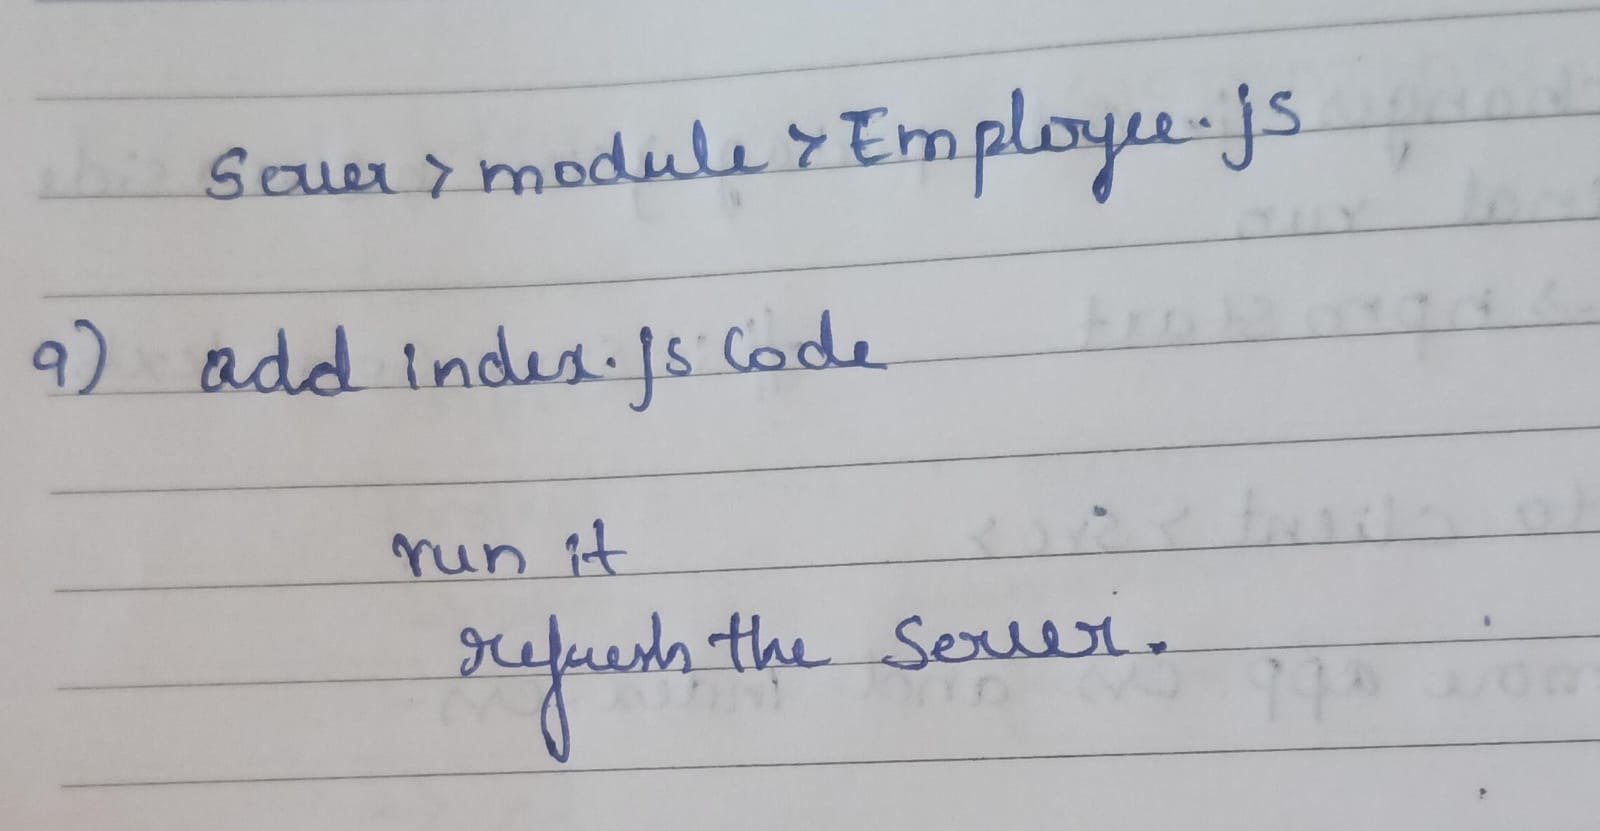 Server > module > Employee.js
9) add index.js Code
run it
refresh the Server.